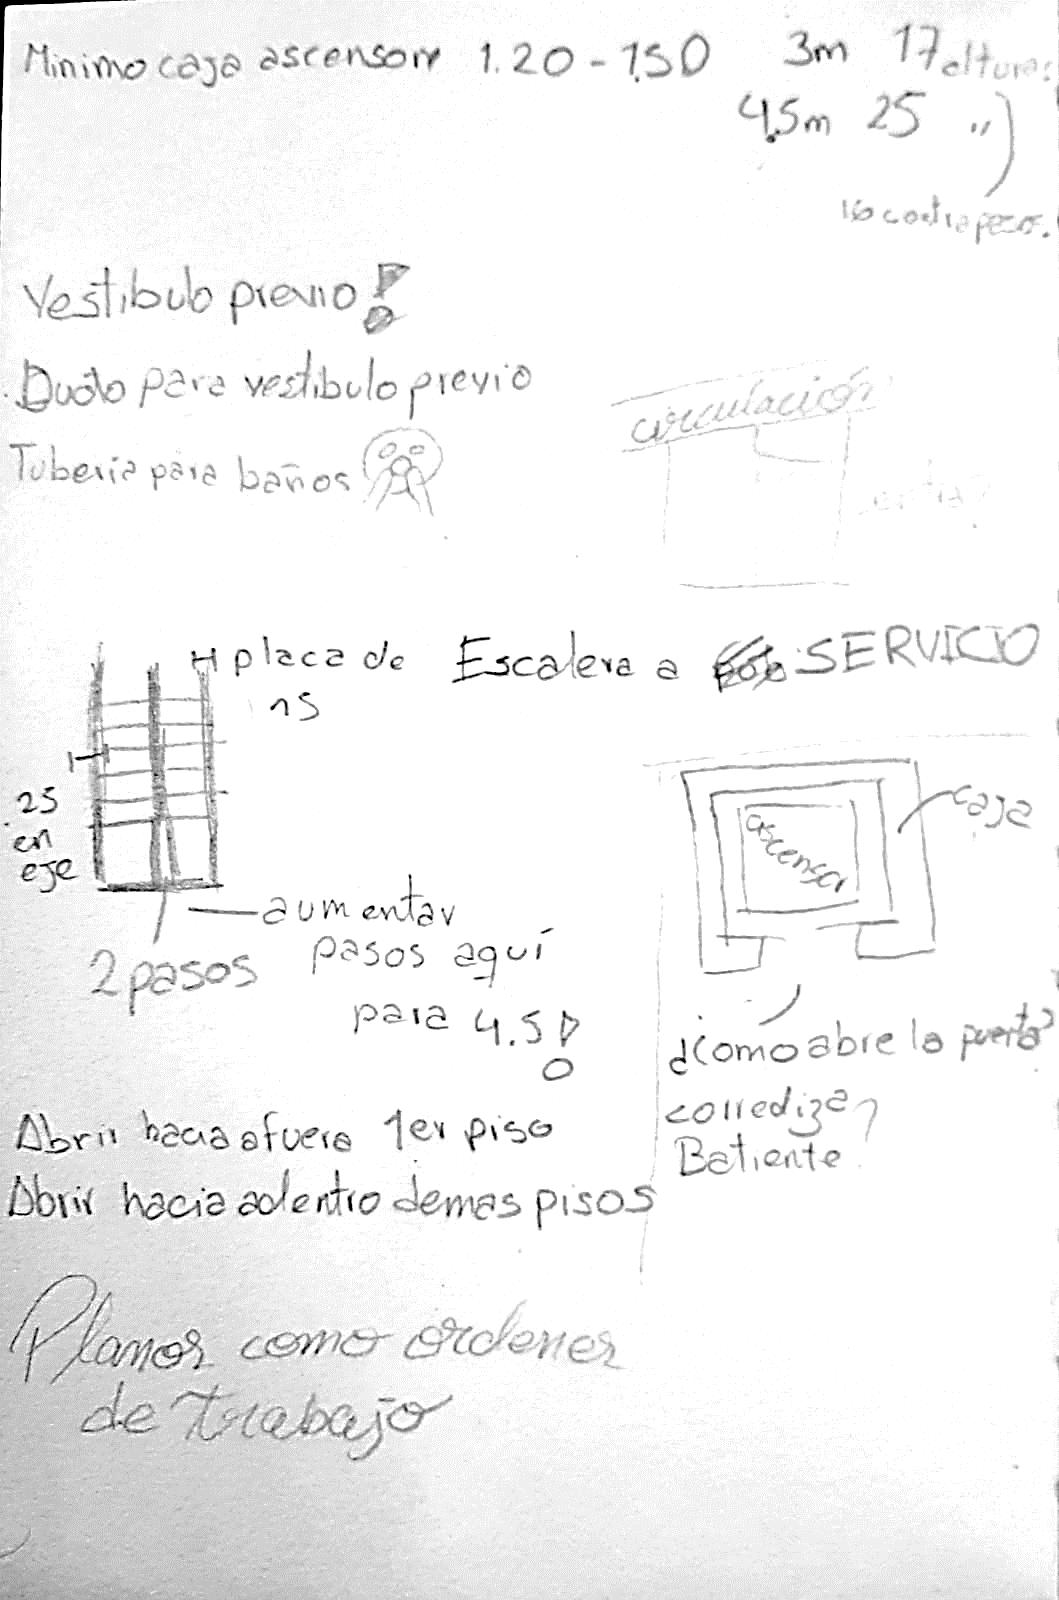 Minimo caja ascensor 1.20 - 1.50 3m 17 alturas
4.5m 25 "
16 contrapeso.
Vestibulo previo!
Ducto para vestibulo previo
circulación
Tuberia para baños
placa de
15
Escalera a SERVICIO
.25
en
eje
caja
ascensor
aumentar
pasos aquí
para 4.5!
2 pasos
¿Como abre la puerta?
corrediza?
Batiente
Abrir hacia afuera 1er piso
Abrir hacia adentro demas pisos
Planos como ordenes
de trabajo